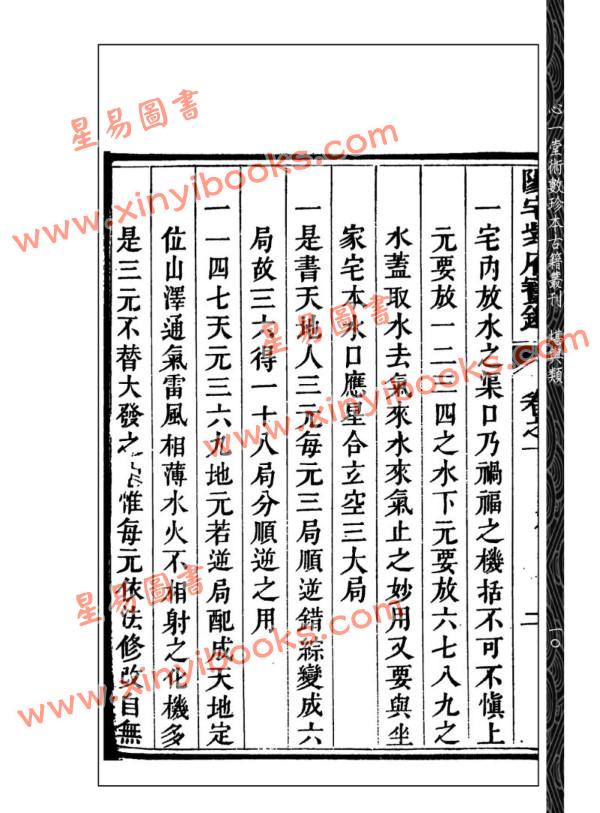 心一堂術數珍本古籍叢刊 類
一〇
卷之一
二
一宅內放水之渠口乃禍福之機括不可不慎上
元要放一二三四之水下元要放六七八九之
水蓋取水去氣來水來氣止之妙用又要與坐
家宅本水口應星合玄空三大局
一是書天地人三元每元三局順逆錯綜變成六
局故三六得一十八局分順逆之用
一一四七天元三六九地元若逆局配成天地定
位山澤通氣雷風相薄水火不相射之化機多
是三元不替大發之 惟每元依法修改自無
星易圖書
www.xinyibooks.com
星易圖書
www.xinyibooks.com
星易圖書
www.xinyibooks.com